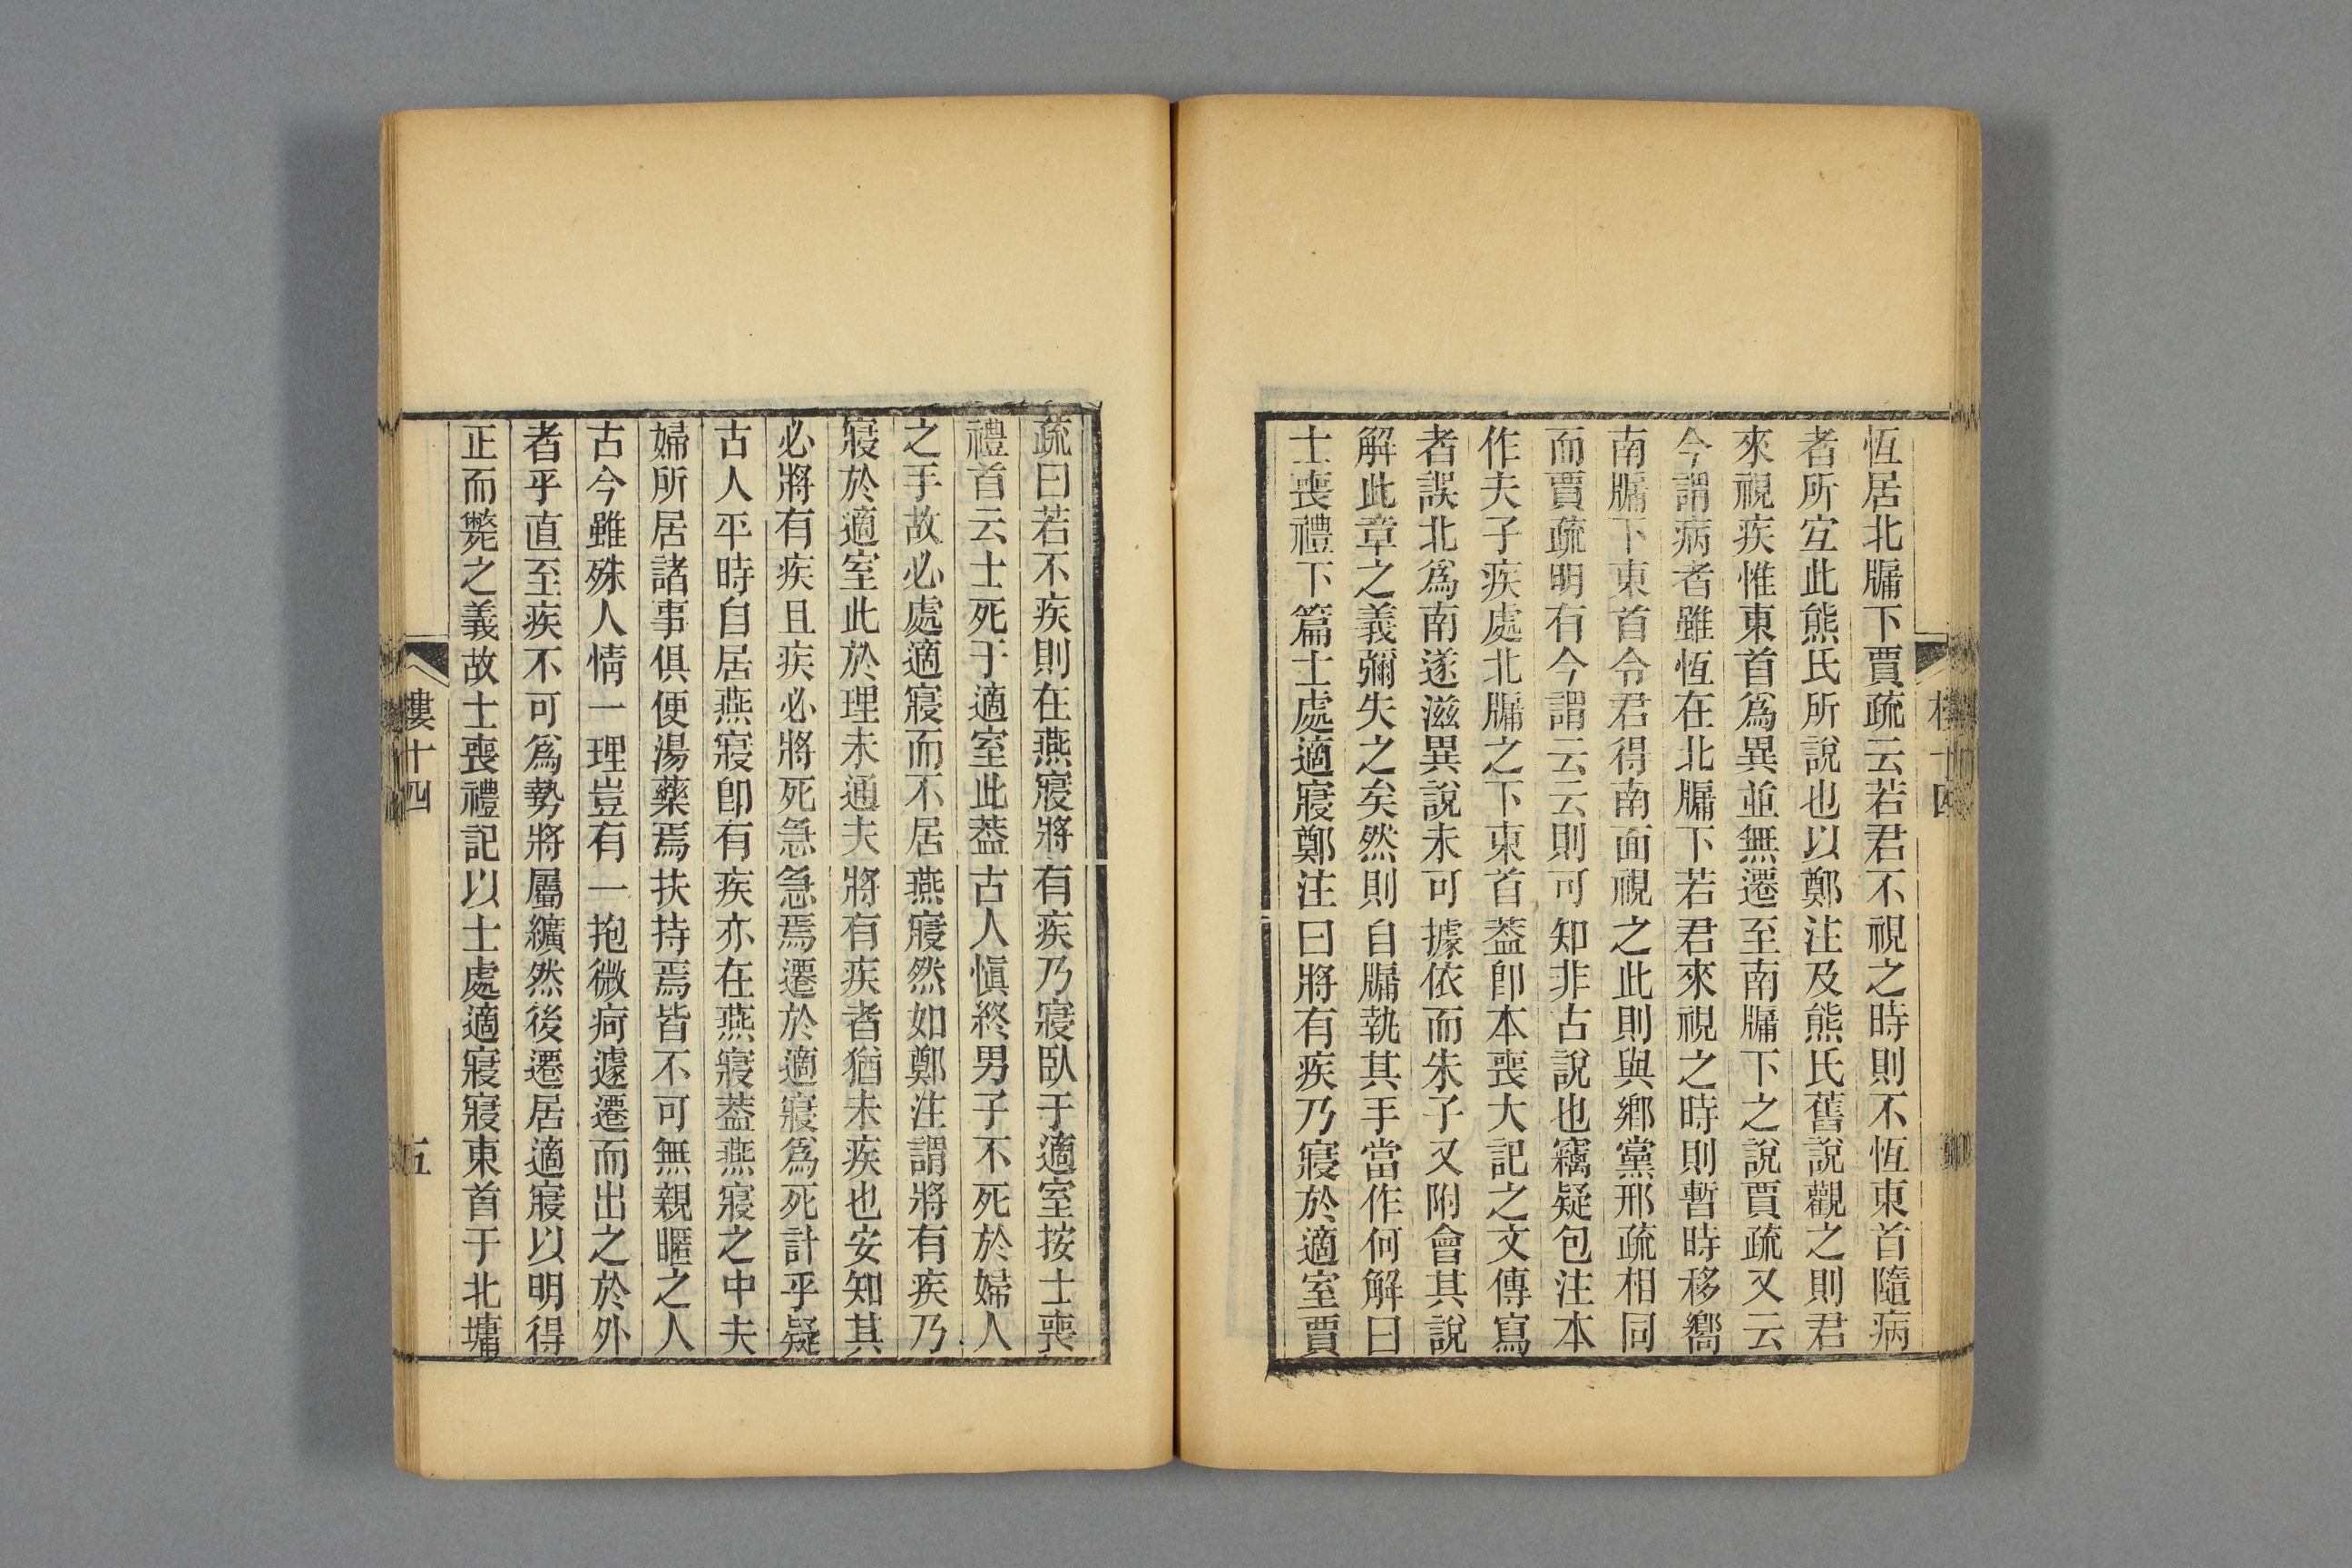 恆居北牖下賈疏云若君不視之時則不恆東首隨病
者所宐此熊氏所說也以鄭注及熊氏舊說觀之則君
來視疾惟東首爲異並無遷至南牖下之說賈疏又云
今謂病者雖恆在北牖下若君來視之時則暫時移嚮
南牖下東首令君得南面視之此則與鄉黨邢疏相同
而賈疏明有今謂云云則可知非古說也竊疑包注本
作夫子疾處北牖之下東首葢卽本喪大記之文傳寫
者誤北爲南遂滋異說未可據依而朱子又附會其說
解此章之義彌失之矣然則自牖執其手當作何解曰
士喪禮下篇士處適寢鄭注曰將有疾乃寢於適室賈
疏曰若不疾則在燕寢將有疾乃寢臥于適室按士喪
禮首云士死于適室此葢古人愼終男子不死於婦人
之手故必處適寢而不居燕寢然如鄭注謂將有疾乃
寢於適室此於理未通夫將有疾者猶未疾也安知其
必將有疾且疾必將死急急焉遷於適寢爲死計乎疑
古人平時自居燕寢卽有疾亦在燕寢葢燕寢之中夫
婦所居諸事俱便湯藥焉扶持焉皆不可無親暱之人
古今雖殊人情一理豈有一抱微疴遽遷而出之於外
者乎直至疾不可爲勢將屬纊然後遷居適寢以明得
正而斃之義故士喪禮記以士處適寢寢東首于北墉
樓十四
五